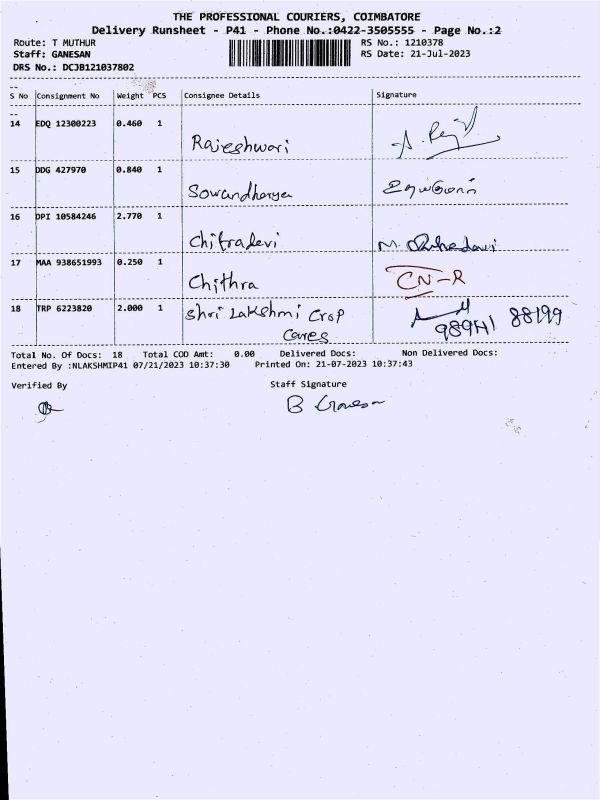 THE PROFESSIONAL COURIERS, COIMBATORE
Delivery Runsheet - P41 - Phone No.:0422-3505555 - Page No.:2
Route: T MUTHUR RS No.: 1210378
Staff: GANESAN RS Date: 21-Jul-2023
DRS No.: DCJB121037802
S No Consignment No Weight PCS Consignee Details Signature
14 EDQ 12300223 0.460 1 Rajeshwari
15 DDG 427970 0.840 1 Sowandharya
16 DPI 10584246 2.770 1 Chitradevi
17 MAA 938651993 0.250 1 Chithra CN-R
18 TRP 6223820 2.000 1 Shri Lakshmi Crop
Cares 88199
Total No. Of Docs: 18 Total COD Amt: 0.00 Delivered Docs: Non Delivered Docs:
Entered By :NLAKSHMIP41 07/21/2023 10:37:30 Printed On: 21-07-2023 10:37:43
Verified By Staff Signature